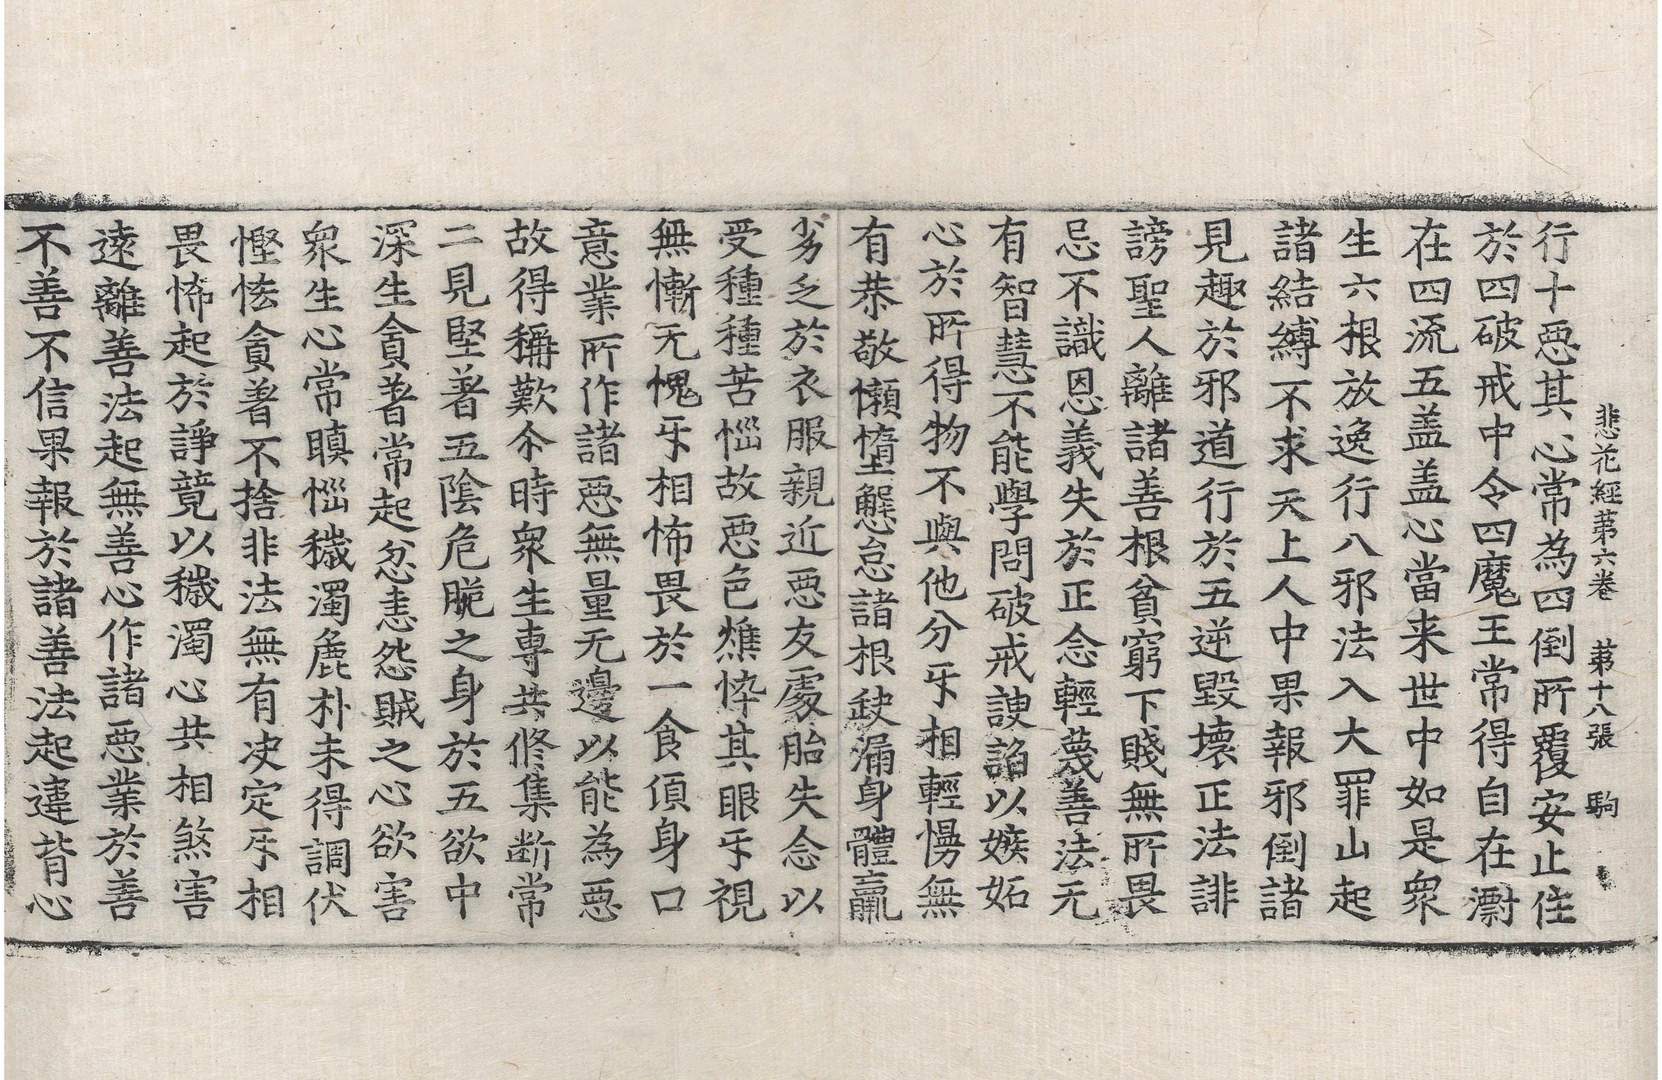 悲花経第六巻 第十八張 駒
行十惡其心常為四倒所覆安止住
於四破戒中令四魔王常得自在㵱
在四流五盖盖心當来世中如是衆
生六根放逸行八邪法入大罪山起
諸結縛不求天上人中果報邪倒諸
見趣於邪道行於五逆毀壞正法誹
謗聖人離諸善根貧窮下賤無所畏
忌不識恩義失於正念輕蔑善法无
有智慧不能學問破戒諛諂以嫉妬
心於所得物不與他分㸦相輕慢無
有恭敬懶惰懈怠諸根缺漏身體羸
劣乏於衣服親近惡友處胎失念以
受種種苦惱故惡色燋悴其眼㸦視
無慚无愧㸦相怖畏於一食頃身口
意業所作諸惡無量无邊以能為惡
故得稱歎尒時衆生専共修集断常
二見堅著五陰危脆之身於五欲中
深生貪著常起忿恚怨賊之心欲害
衆生心常瞋惱穢濁麁朴未得調伏
慳悋貪著不捨非法無有决定㸦相
畏怖起於諍競以穢濁心共相煞害
遠離善法起無善心作諸惡業於善
不善不信果報於諸善法起違背心